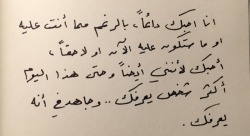 انا احبك دائماً، بالرغم مما أنت عليه
او ما ستكون عليه الآن او لاحقاً،
أحبك لأنني أيضاً وحتى هذا اليوم
أكثر شخص يعرفك.. وجاهد في أنه
يعرفك.